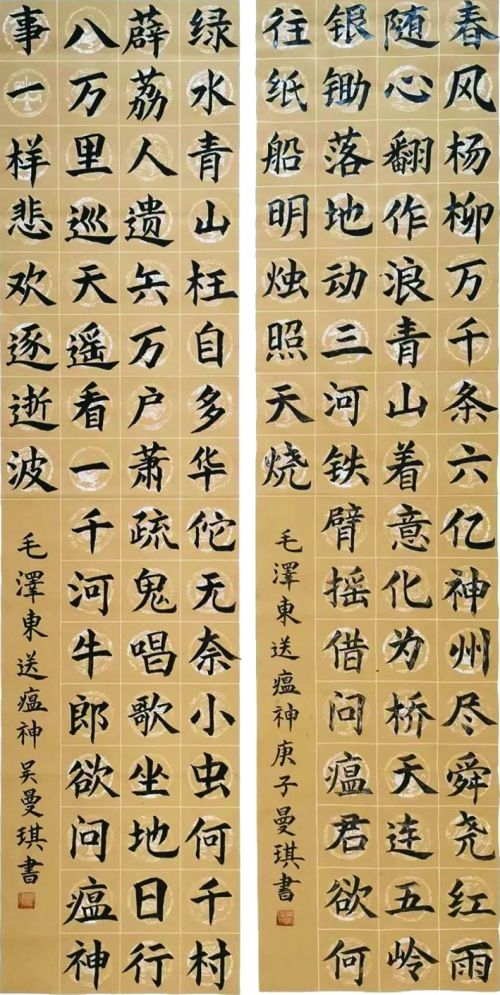 绿水青山枉自多华佗无奈小虫何千村
薜荔人遗矢万户萧疏鬼唱歌坐地日行
八万里巡天遥看一千河牛郎欲问瘟神
事一样悲欢逐逝波
毛澤東送瘟神 吴曼琪書
春风杨柳万千条六亿神州尽舜尧红雨
随心翻作浪青山着意化为桥天连五岭
银锄落地动三河铁臂摇借问瘟君欲何
往纸船明烛照天烧
毛澤東送瘟神庚子曼琪書